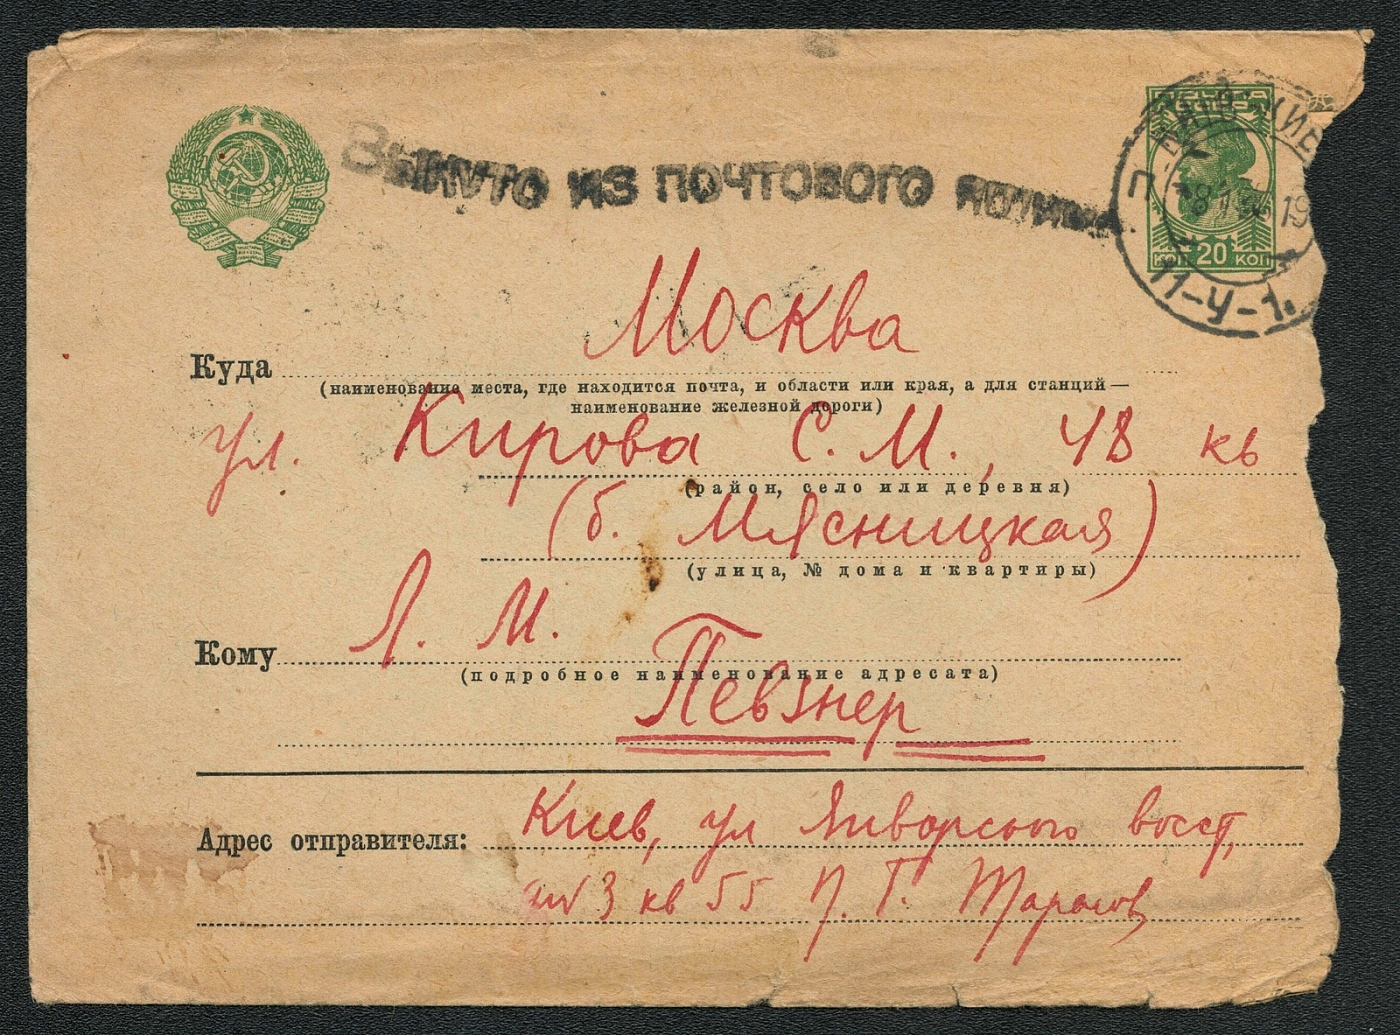 ПОЧТА
СССР
КОП 20 КОП
П
19
11-У-1.
Выкуто из почтового ящика.
Москва
Куда
(наименование места, где находится почта, и области или края, а для станций—
наименование железной дороги)
ул. Кирова С. М., 48 кв
(район, село или деревня)
(б. Мясницкая)
(улица, № дома и квартиры)
Кому Л. М.
(подробное наименование адресата)
Певзнер
Адрес отправителя: Киев, ул Январского восст,
3 кв 55 П. Г. Тарасов